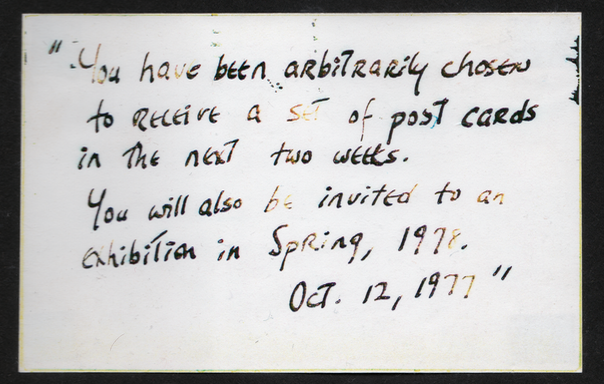 "You have been arbitrarily chosen
to receive a set of post cards
in the next two weeks.
You will also be invited to an
exhibition in Spring, 1978.
Oct. 12, 1977"